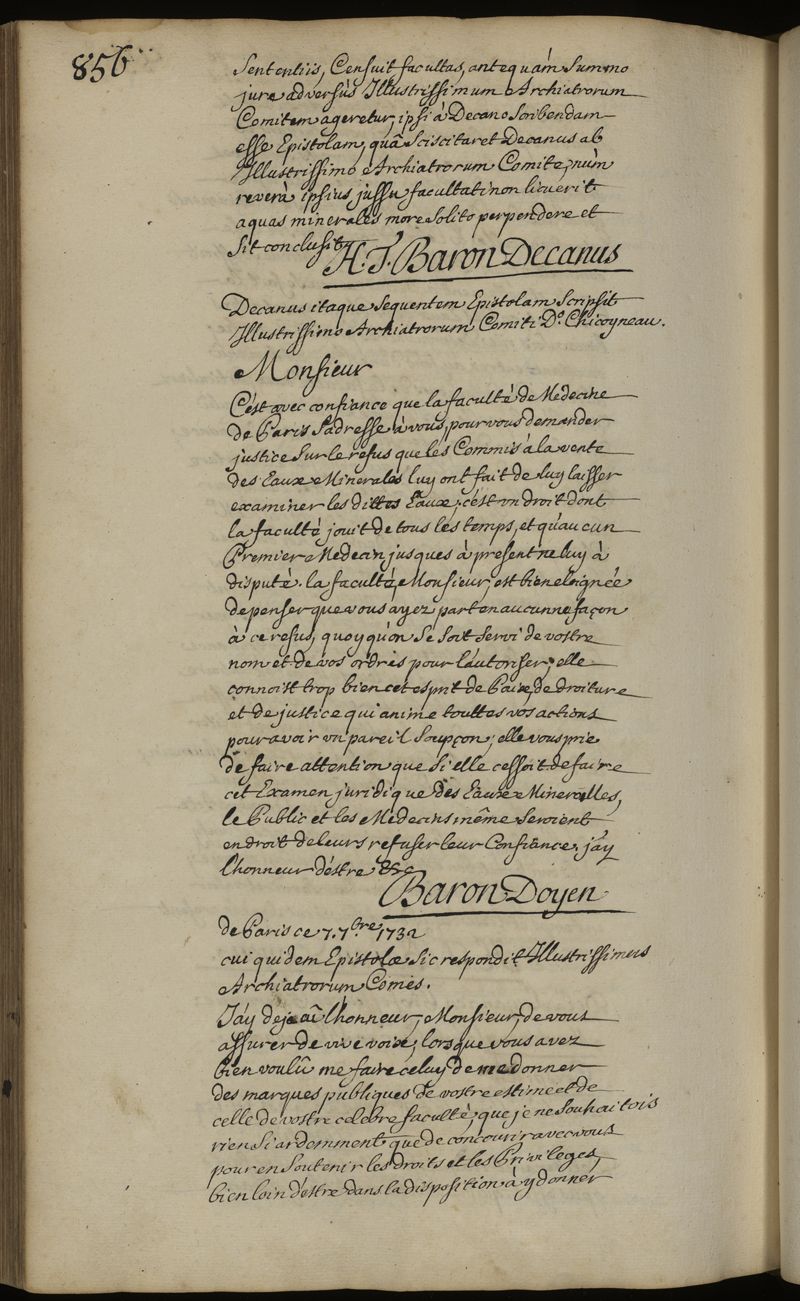 856
Sententiis, Censuit facultas, antequàm Summo
jure adversùs Illustrissimum Archiatrorum
Comitem ageretur, ipsi à Decano Scribendam
esse Epistolam, quâ Sciscitaret Decanus ab
Illustrissimo Archiatrorum Comite, nùm
reverà ipsius jussu facultati non licuerit
aquas minerales more Solito perpendere et
Sit conclusit
H. T. Baron Decanus
Decanus itaque Sequentem Epistolam Scripsit
Illustrissimo Archiatrorum Comiti D.º Chicoyneau.
Monsieur
C'est avec confiance que la faculté de Médecine
de Paris S'adresse à vous, pour vous demander
justice Sur le refus que les Commis à la vente
des Eaux Minerales luy ont fait de luy laisser
examiner les dittes Eaux; c'est un droit dont
la faculté jouit de tous les temps, et qu'aucun
Premier Medecin jusques à present ne luy à
disputé. la faculté, Monsieur, est bien eloignée
de penser que vous ayez part en aucunne façon
à ce refus, quoy qu'on Se Soit Servi de vostre
nom et de vos ordres pour l'autoriser; elle
connoist trop bien cet esprit de Paix, de droiture
et de justice qui anime touttes vos actions
pour avoir un pareil Soupçon; elle vous prie
de faire attention que Si elle cessoit de faire
cet Examen juridique des Eaux Minerálles,
le Public et les Médecins même Seroient
en droit de leurs refuser leur Confiance. j'ay
l'honneur d'éstre &c
Baron Doyen
de Paris ce 7. 7bre 1732
cui quidem Epistolæ Sic respondit Illustrissimus
Archiatrorum Comes.
J'ay deja eû l'honneur, Monsieur, de vous
assurer de vive voix, lorsque vous avez
bien voulû me faire celuy de me donner
des marques publiques de vostre estime et de
celle de vostre celebre faculté, que je ne Souhaitois
rien Si ardemment que de concourir avec vous
pour en Soutenir les droits et les Privileges,
bien loin d'éstre dans la disposition à y donner